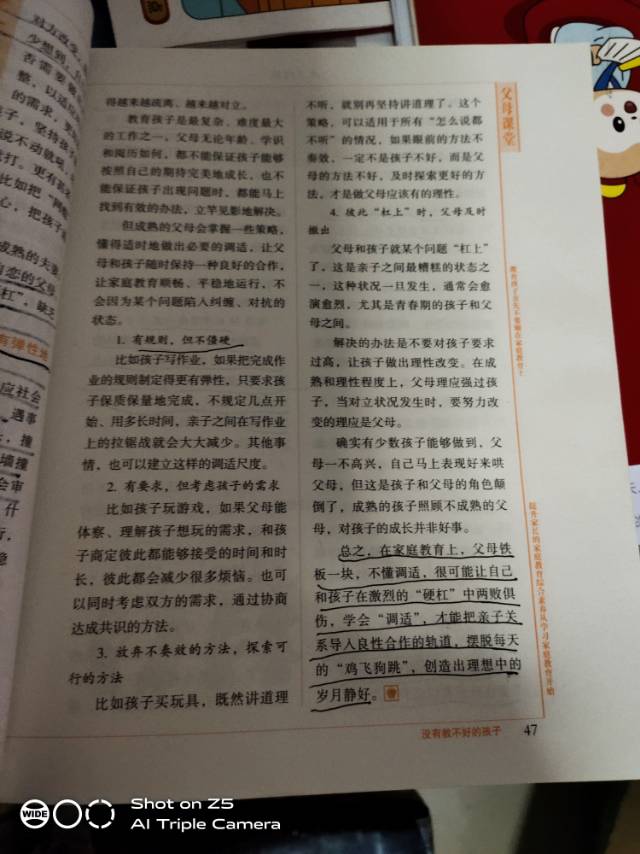 对方改变，
少想到，
否需要
整，以适
的需求，
子，坚持
说不动就吼
打。更有甚
比如把
心，把孩子
成熟的夫妻
自恋的父母
杠"，缺乏
有弹性地
应社会
遇事
撞
墙撞
会审
仟
行，
稳
得越来越疏离、越来越对立。
教育孩子是最复杂、难度最大
的工作之一，父母无论年龄、学识
和阅历如何，都不能保证孩子能够
按照自己的期待完美地成长，也不
能保证孩子出现问题时，都能马上
找到有效的办法，立竿见影地解决。
但成熟的父母会掌握一些策略，
懂得适时地做出必要的调适，让父
母和孩子随时保持一种良好的合作，
让家庭教育顺畅、平稳地运行，不
会因为某个问题陷入纠缠、对抗的
状态。
1. 有规则，但不僵硬
比如孩子写作业，如果把完成作
业的规则制定得更有弹性，只要求孩
子保质保量地完成，不规定几点开
始、用多长时间，亲子之间在写作业
上的拉锯战就会大大减少。其他事
情，也可以建立这样的调适尺度。
2. 有要求，但考虑孩子的需求
比如孩子玩游戏，如果父母能
体察、理解孩子想玩的需求，和孩
子商定彼此都能够接受的时间和时
长，彼此都会减少很多烦恼。也可
以同时考虑双方的需求，通过协商
达成共识的方法。
3. 放弃不奏效的方法，探索可
行的方法
比如孩子买玩具，既然讲道理
不听，就别再坚持讲道理了。这个
策略，可以适用于所有“怎么说都
不听”的情况，如果眼前的方法不
奏效，一定不是孩子不好，而是父
母的方法不好，及时探索更好的方
法，才是做父母应该有的理性。
4. 彼此“杠上”时，父母及时
撤出
父母和孩子就某个问题“杠上”
了，这是亲子之间最糟糕的状态之
一，这种状况一旦发生，通常会愈
演愈烈，尤其是青春期的孩子和父
母之间。
解决的办法是不要对孩子要求
过高，让孩子做出理性改变。在成
熟和理性程度上，父母理应强过孩
子，当对立状况发生时，要努力改
变的理应是父母。
确实有少数孩子能够做到，父
母一不高兴，自己马上表现好来哄
父母，但这是孩子和父母的角色颠
倒了，成熟的孩子照顾不成熟的父
母，对孩子的成长并非好事。
总之，在家庭教育上，父母铁
板一块，不懂调适，很可能让自己
和孩子在激烈的“硬杠”中两败俱
伤，学会“调适”，才能把亲子关
系导入良性合作的轨道，摆脱每天
的“鸡飞狗跳”，创造出理想中的
岁月静好。
父母课堂
提升家长的家庭教育综合素养从学习家庭教育开始
没有教不好的孩子 47
WIDE
Shot on Z5
AI Triple Camera